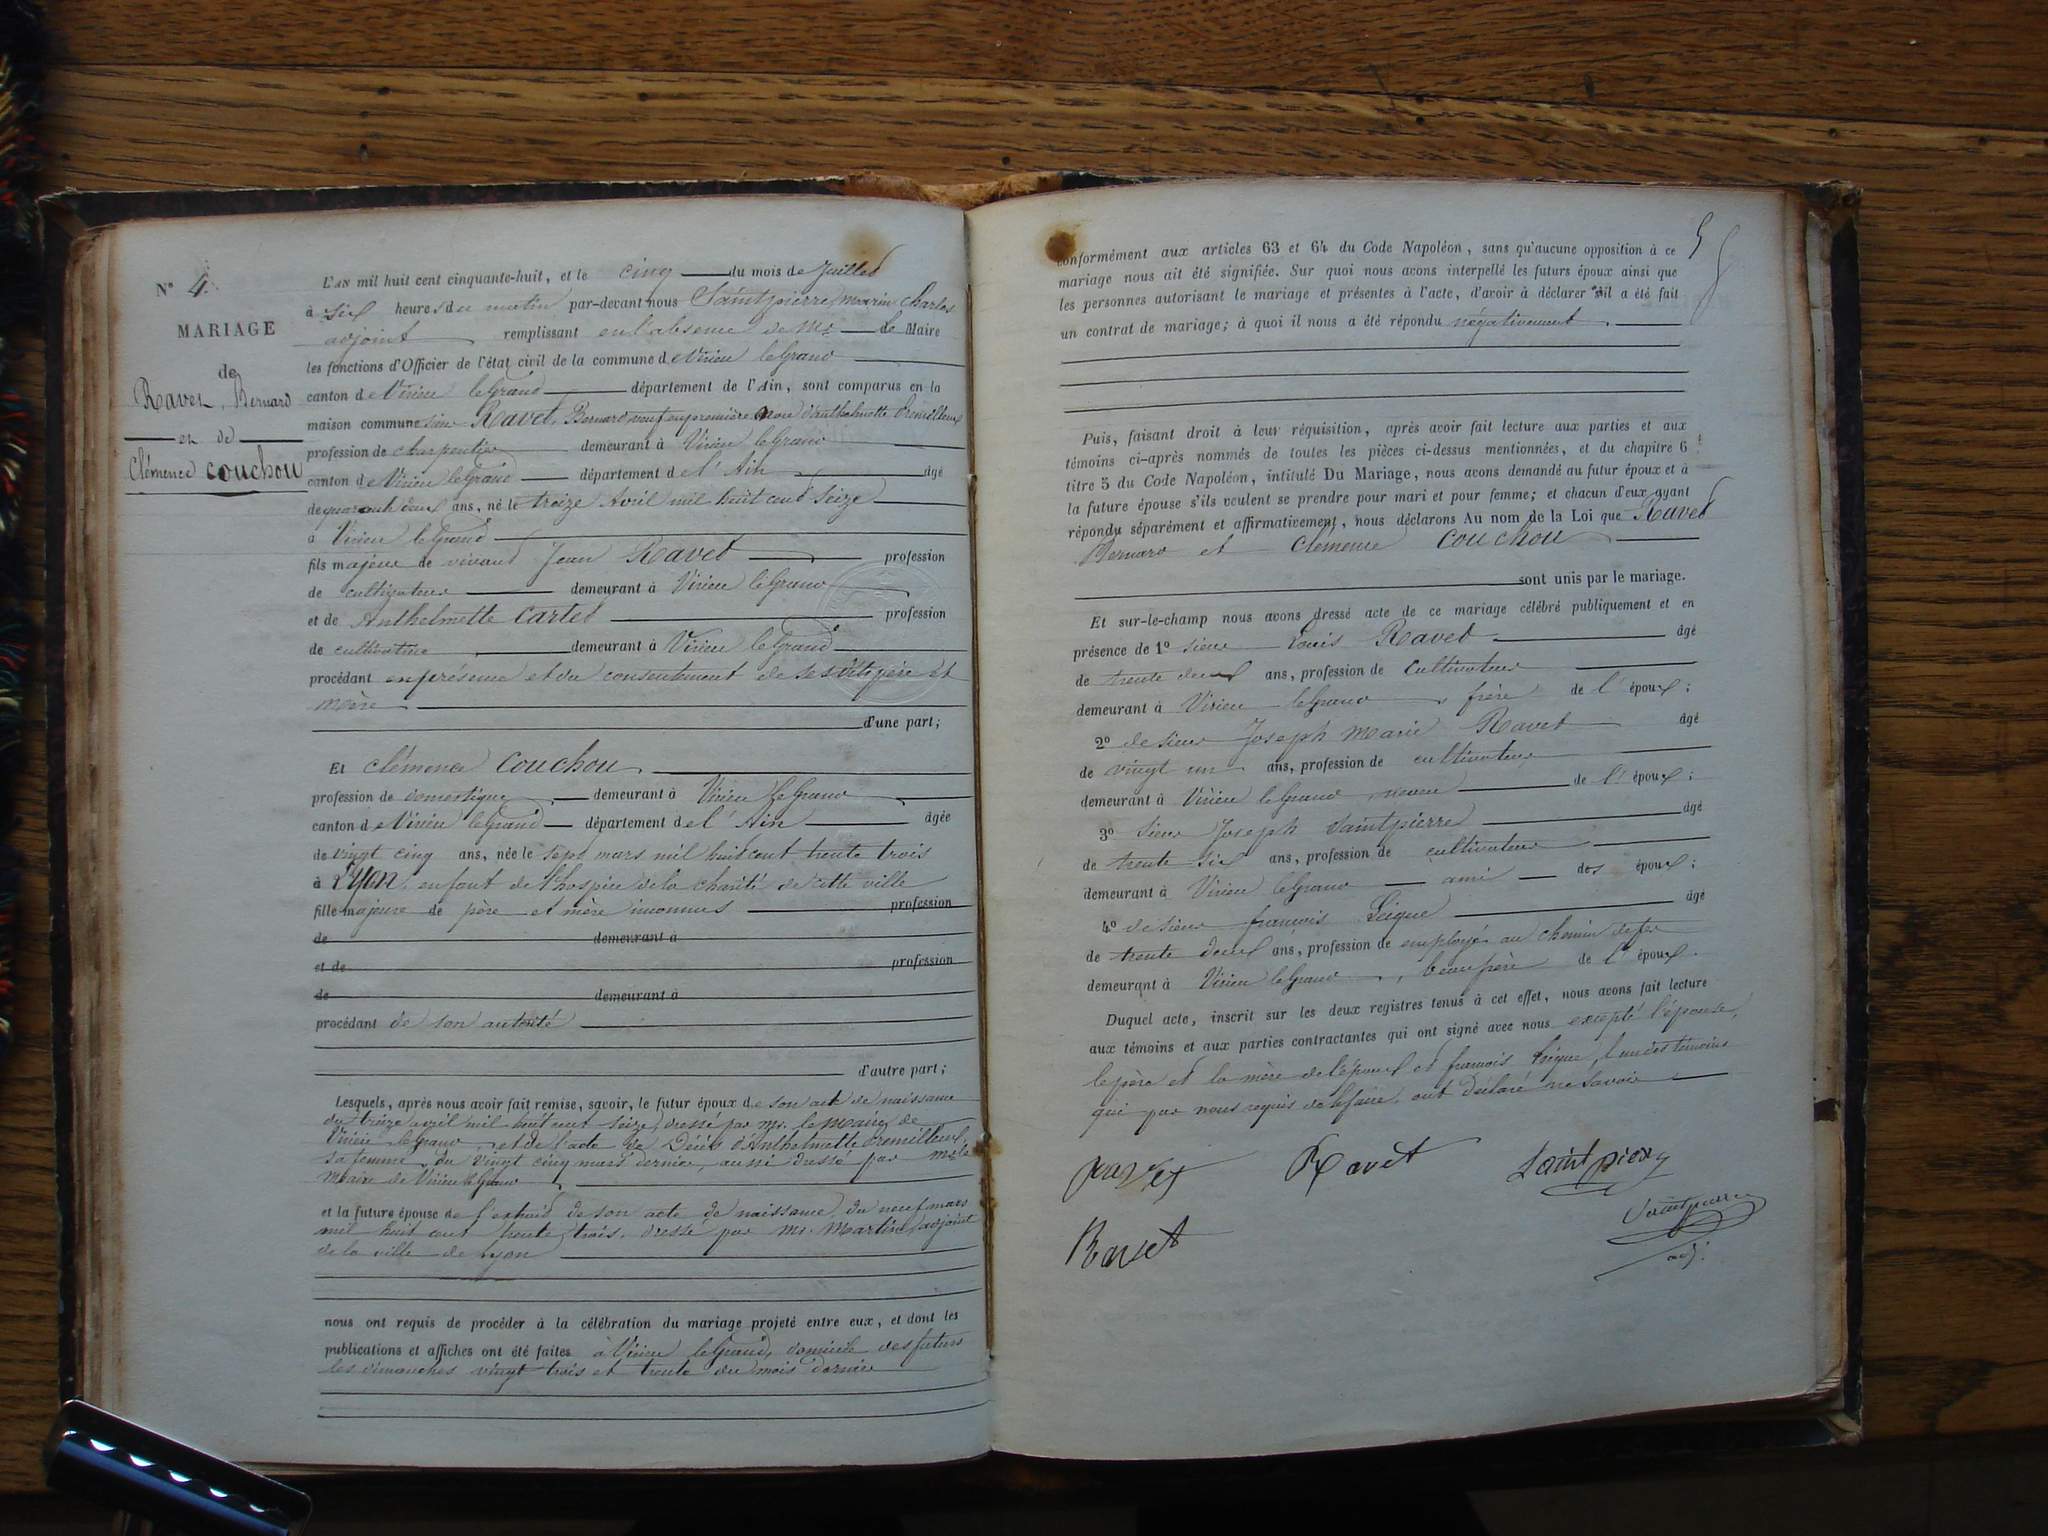 N° 4.
MARIAGE
de
Ravet, Bernard
et de
Clémence Couchou
L'AN mil huit cent cinquante-huit, et le cinq du mois de Juillet
à six heures du matin par-devant nous Saintpierre, marin Charles
adjoint remplissant en l'absence de Mr le Maire
les fonctions d'Officier de l'état civil de la commune de Virieu le Grand
canton de Virieu le Grand département de l'Ain, sont comparus en la
maison commune sieur Ravet, Bernard veuf en première noce d'anthelmette
profession de charpentier demeurant à Virieu le Grand
canton de Virieu le Grand département de l'Ain âgé
de quarante deux ans, né le treize Avril mil huit cent Seize
à Virieu le Grand
fils majeur de vivant Jean Ravet profession
de cultivateur demeurant à Virieu le Grand
et de Anthelmette Cartet profession
de cultivatrice demeurant à Virieu le Grand
procédant en présence et du consentement de ses dits père et
mère
d'une part;
Et Clémence Couchou
profession de domestique demeurant à Virieu le Grand
canton de Virieu le Grand département de l'Ain âgée
de vingt cinq ans, née le sept mars mil huit cent trente trois
à Lyon, enfant de l'hospice de la charité de cette ville
fille majeure de père et mère inconnus profession
de demeurant à
et de profession
de demeurant à
procédant de son autorité
d'autre part;
Lesquels, après nous avoir fait remise, savoir, le futur époux de son acte de naissance
du treize avril mil huit cent seize, dressé par Mr. le Maire de
Virieu le Grand, et de l'acte de Décès d'Anthelmette
sa femme, du vingt cinq mars dernier, aussi dressé par Mr le
Maire de Virieu le Grand
et la future épouse de l'extrait de son acte de naissance, du neuf mars
mil huit cent trente trois, dressé par Mr. Martin, adjoint
de la ville de Lyon
nous ont requis de procéder à la célébration du mariage projeté entre eux, et dont les
publications et affiches ont été faites à Virieu le Grand, domicile des futurs
les dimanches vingt trois et trente du mois dernier
5
conformément aux articles 63 et 64 du Code Napoléon, sans qu'aucune opposition à ce
mariage nous ait été signifiée. Sur quoi nous avons interpellé les futurs époux ainsi que
les personnes autorisant le mariage et présentes à l'acte, d'avoir à déclarer s'il a été fait
un contrat de mariage; à quoi il nous a été répondu négativement.
Puis, faisant droit à leur réquisition, après avoir fait lecture aux parties et aux
témoins ci-après nommés de toutes les pièces ci-dessus mentionnées, et du chapitre 6
titre 5 du Code Napoléon, intitulé Du Mariage, nous avons demandé au futur époux et à
la future épouse s'ils veulent se prendre pour mari et pour femme; et chacun d'eux ayant
répondu séparément et affirmativement, nous déclarons Au nom de la Loi que Ravet
Bernard et Clémence Couchou
sont unis par le mariage.
Et sur-le-champ nous avons dressé acte de ce mariage célébré publiquement et en
présence de 1° sieur Louis Ravet âgé
de trente deux ans, profession de cultivateur
demeurant à Virieu le Grand, frère de l'époux;
2° de sieur Joseph Marie Ravet âgé
de vingt un ans, profession de cultivateur
demeurant à Virieu le Grand, neveu de l'époux;
3° Sieur Joseph Saintpierre âgé
de trente six ans, profession de cultivateur
demeurant à Virieu le Grand ami des époux;
4° de sieur françois Seigue âgé
de trente deux ans, profession de employé au chemin de fer
demeurant à Virieu le Grand, beau frère de l'époux.
Duquel acte, inscrit sur les deux registres tenus à cet effet, nous avons fait lecture
aux témoins et aux parties contractantes qui ont signé avec nous excepté l'épouse,
le père et la mère de l'époux et françois Seigue, l'un des témoins
qui par nous requis de le faire, ont déclaré ne savoir
Ravet Ravet Saintpierre
Ravet
Saintpierre
adj.